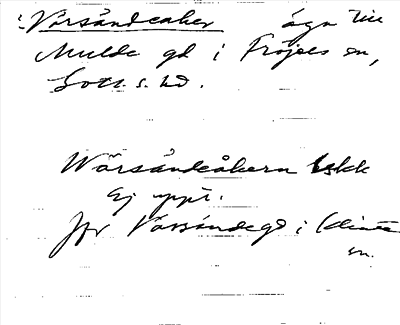 Vårsåndeaker ägn till
Mulde gd i Fröjels sn,
Gotl. s. hd.
Wårsåndeåkern Uskk
Ej uppt.
Jfr Vårsändegd i Klinte
sn.